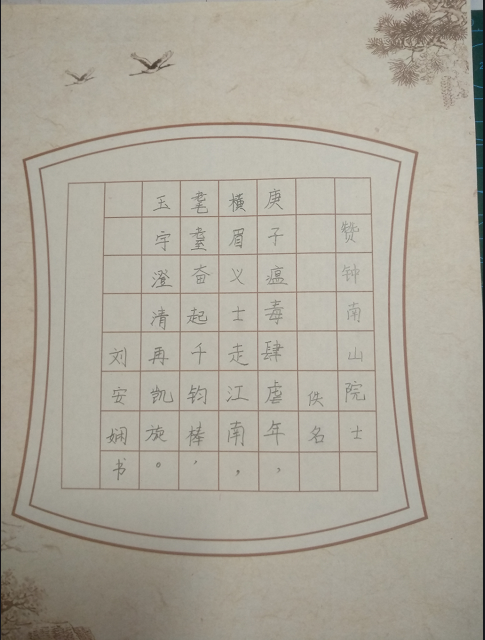 赞钟南山院士
佚名
庚子瘟毒肆虐年，
横眉义士走江南，
耄耋奋起千钧棒，
玉宇澄清再凯旋。
刘安娴书